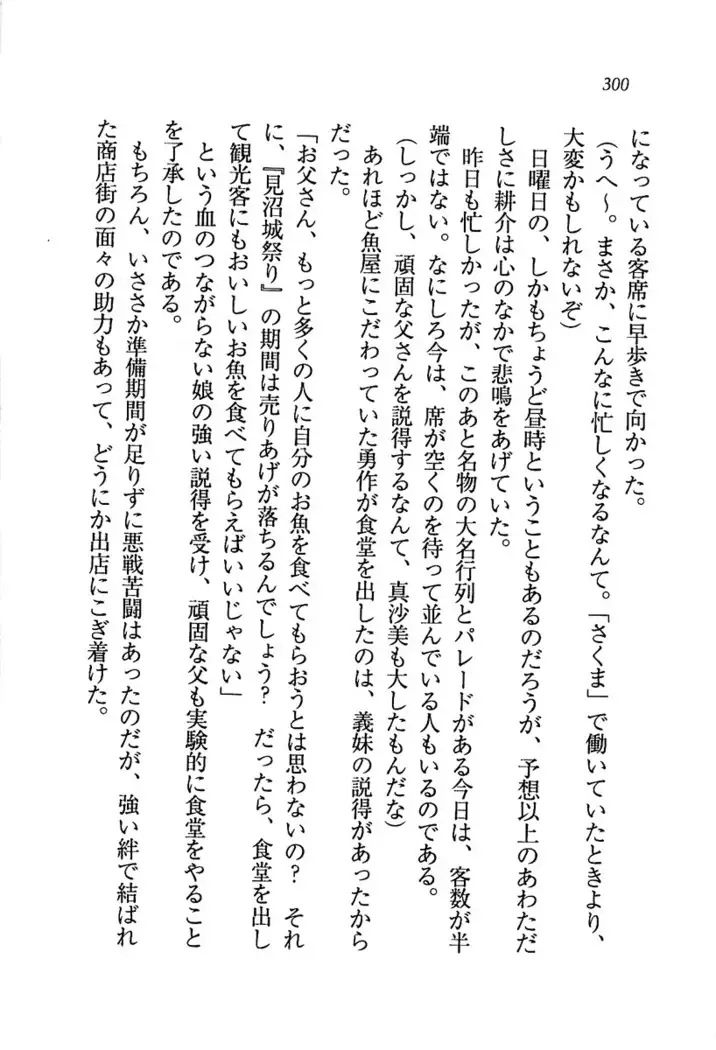 300
になっている客席に早歩きで向かった。
(うへ〜。まさか、こんなに忙しくなるなんて。「さくま」で働いていたときより、
大変かもしれないぞ)
日曜日の、しかもちょうど昼時ということもあるのだろうが、予想以上のあわただ
しさに耕介は心のなかで悲鳴をあげていた。
昨日も忙しかったが、このあと名物の大名行列とパレードがある今日は、客数が半
端ではない。なにしろ今は、席が空くのを待って並んでいる人もいるのである。
(しっかし、頑固な父さんを説得するなんて、真沙美も大したもんだな)
あれほど魚屋にこだわっていた勇作が食堂を出したのは、義妹の説得があったから
だった。
「お父さん、もっと多くの人に自分のお魚を食べてもらおうとは思わないの? それ
に、『見沼城祭り』の期間は売りあげが落ちるんでしょう? だったら、食堂を出し
て観光客にもおいしいお魚を食べてもらえばいいじゃない」
という血のつながらない娘の強い説得を受け、頑固な父も実験的に食堂をやること
を了承したのである。
もちろん、いささか準備期間が足りずに悪戦苦闘はあったのだが、強い絆で結ばれ
た商店街の面々の助力もあって、どうにか出店にこぎ着けた。